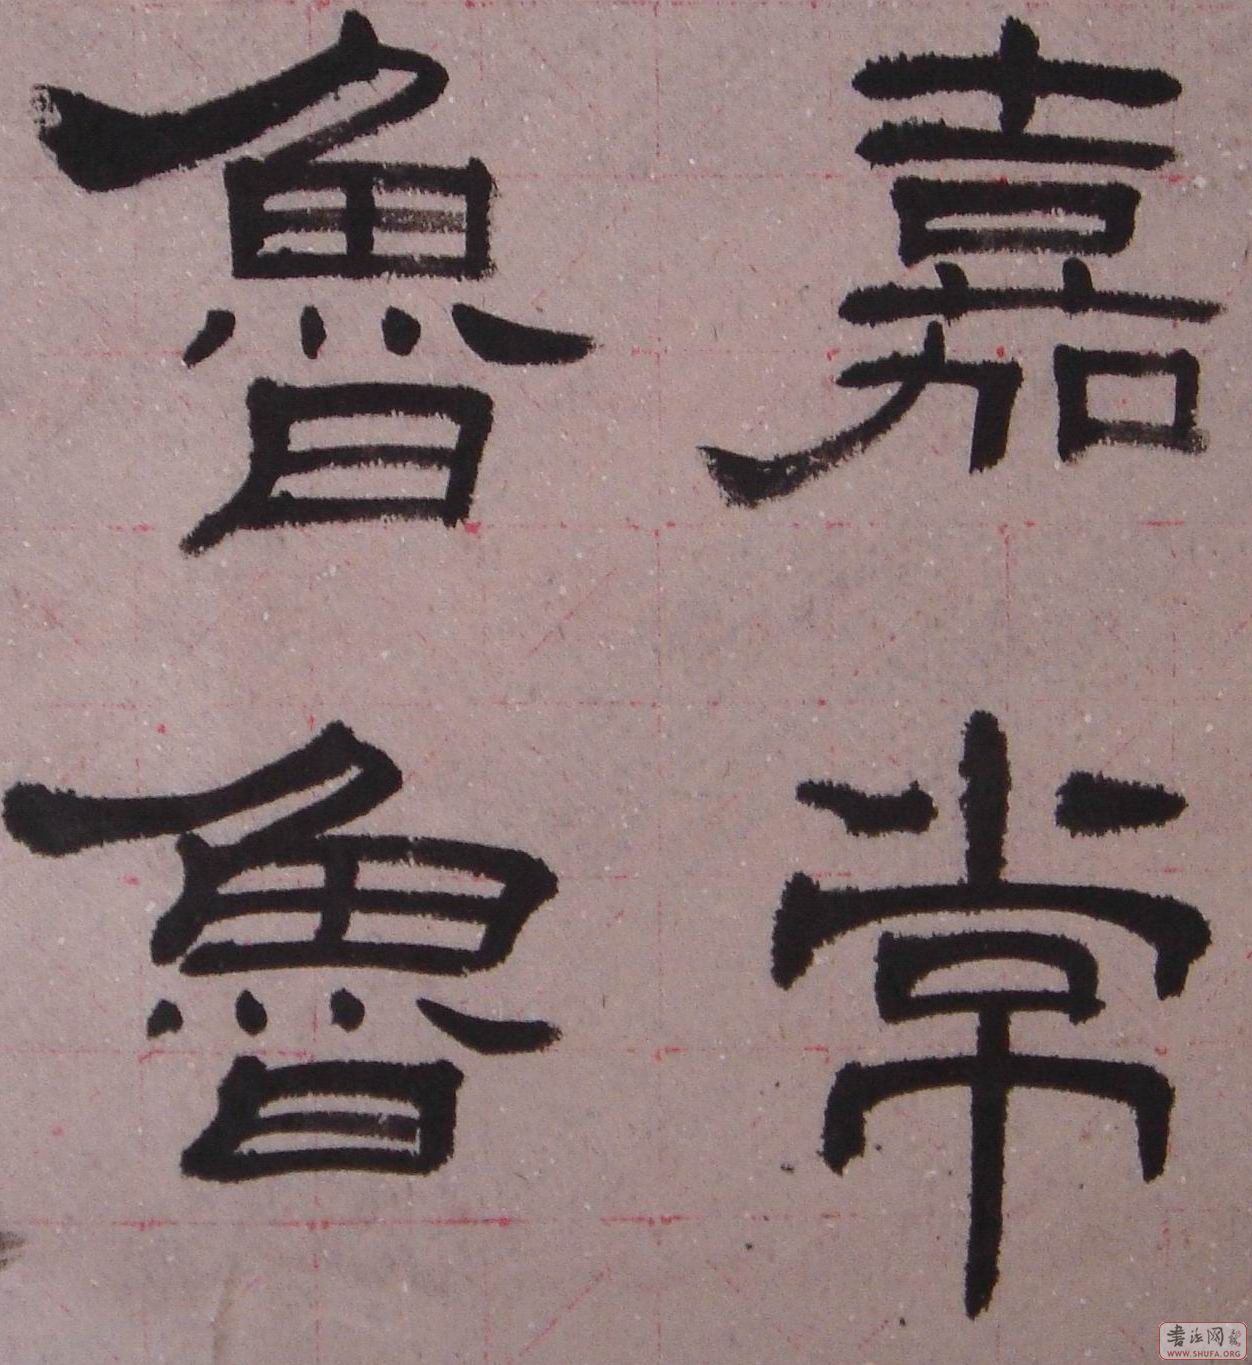 嘉常
魯魯
書法网
WWW.SHUFA.ORG